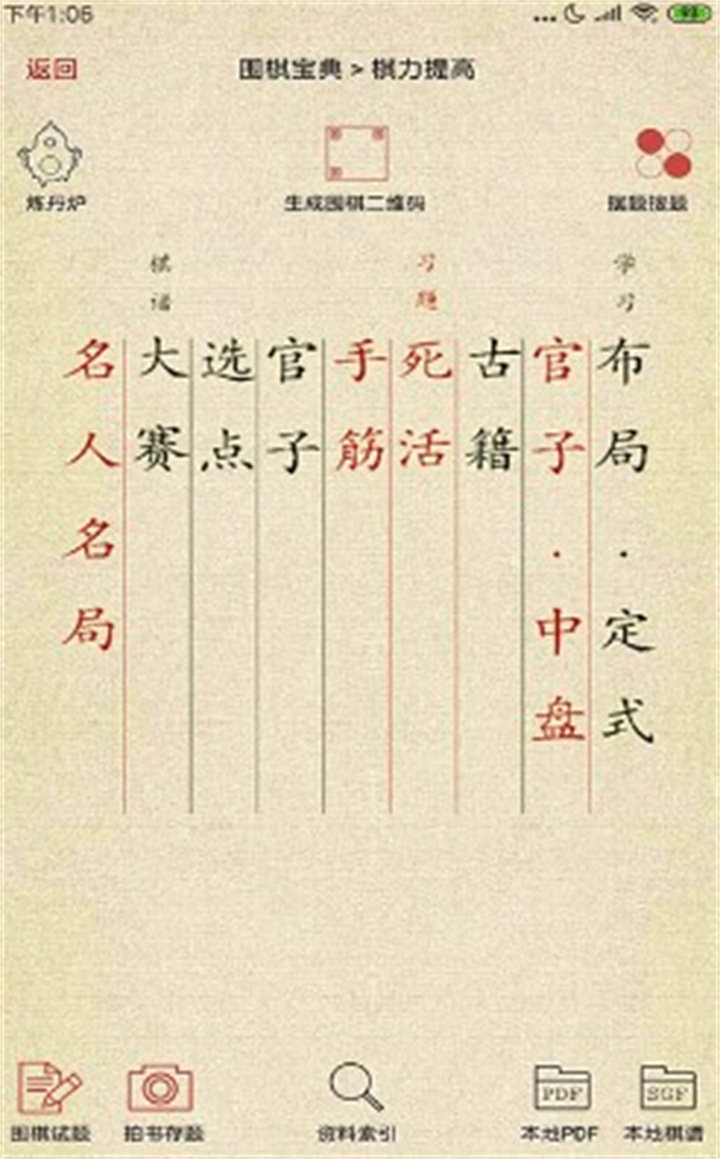 下午1:06
返回
围棋宝典 > 棋力提高
炼丹炉
生成围棋二维码
摆题接题
学习
习题
棋谱
布局·定式
官子·中盘
古籍
死活
手筋
官子
选点
大赛
名人名局
围棋试题
拍书存题
资料索引
PDF
本地PDF
SGF
本地棋谱